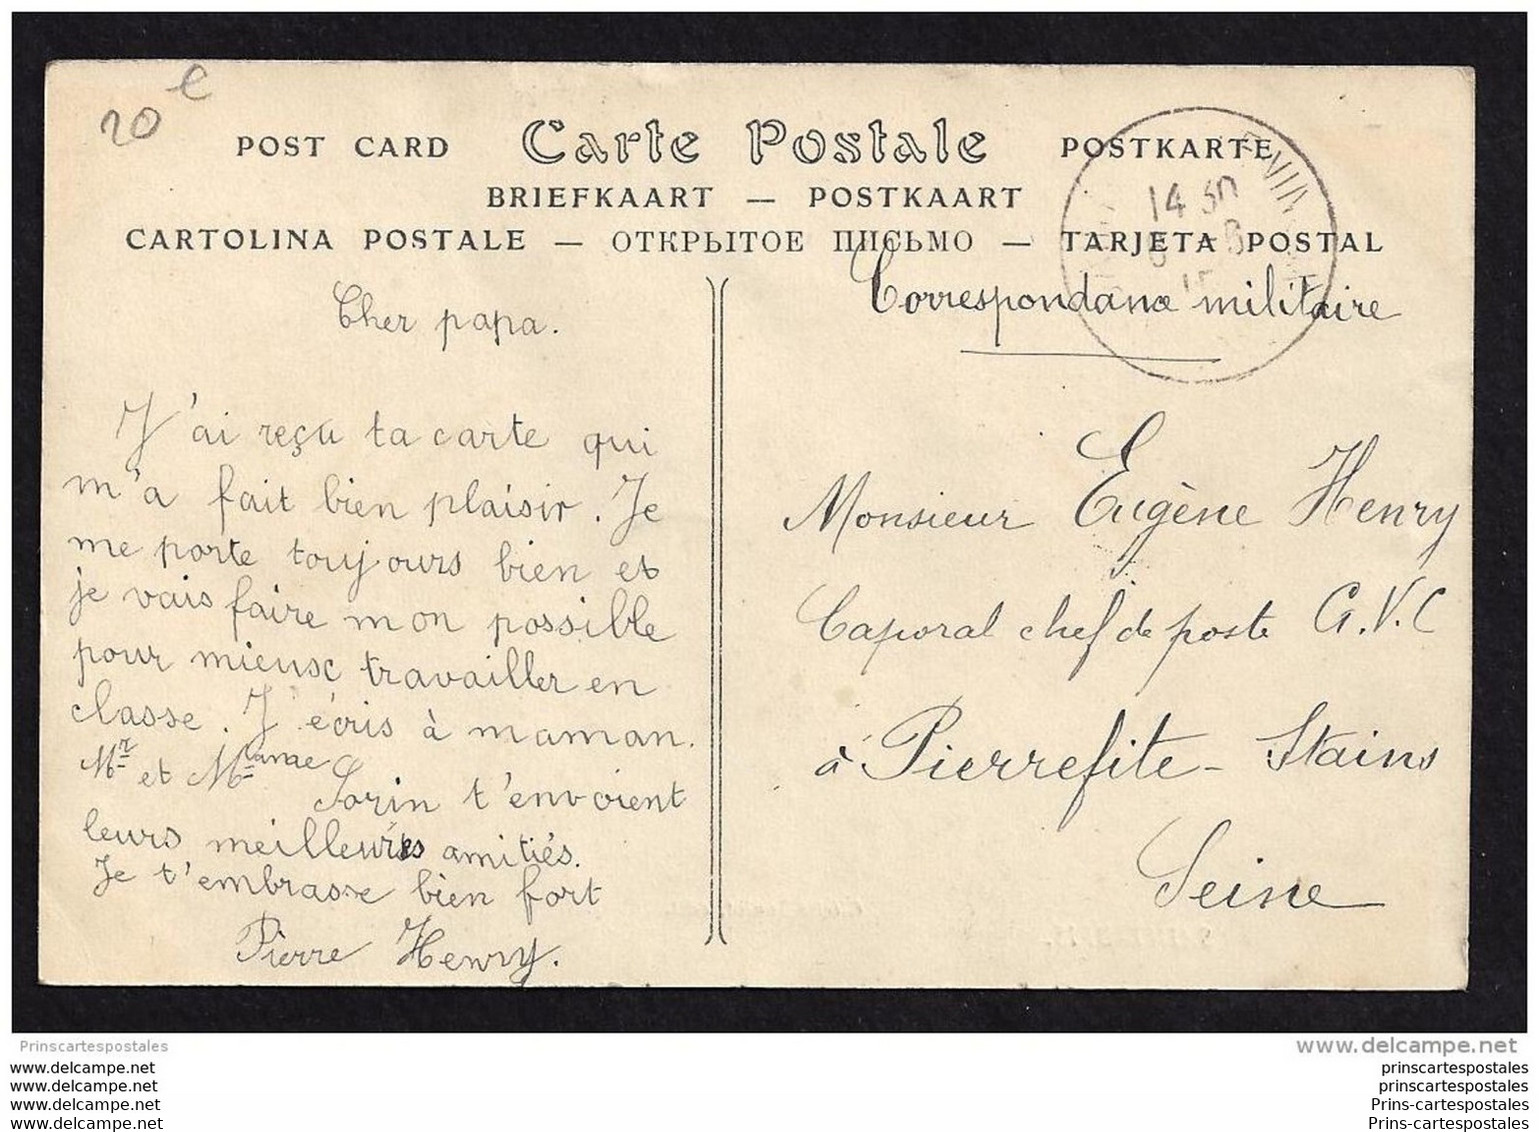 20 e
POST CARD Carte Postale POSTKARTE
BRIEFKAART — POSTKAART
CARTOLINA POSTALE — ОТКРЫТОЕ ПИСЬМО — TARJETA POSTAL
14 30
Cher papa.
J'ai reçu ta carte qui
m'a fait bien plaisir. Je
me porte toujours bien et
je vais faire mon possible
pour mieux travailler en
classe. J'écris à maman.
Mr et Mame Sorin t'envoient
leurs meilleures amitiés.
Je t'embrasse bien fort
Pierre Henry.
Correspondance militaire
Monsieur Eugène Henry
Caporal chef de poste G.V.C
à Pierrefite - Stains
Seine
Prinscartespostales
www.delcampe.net
www.delcampe.net
www.delcampe.net
www.delcampe.net
www.delcampe.net
prinscartespostales
prinscartespostales
Prins-cartespostales
Prins-cartespostales